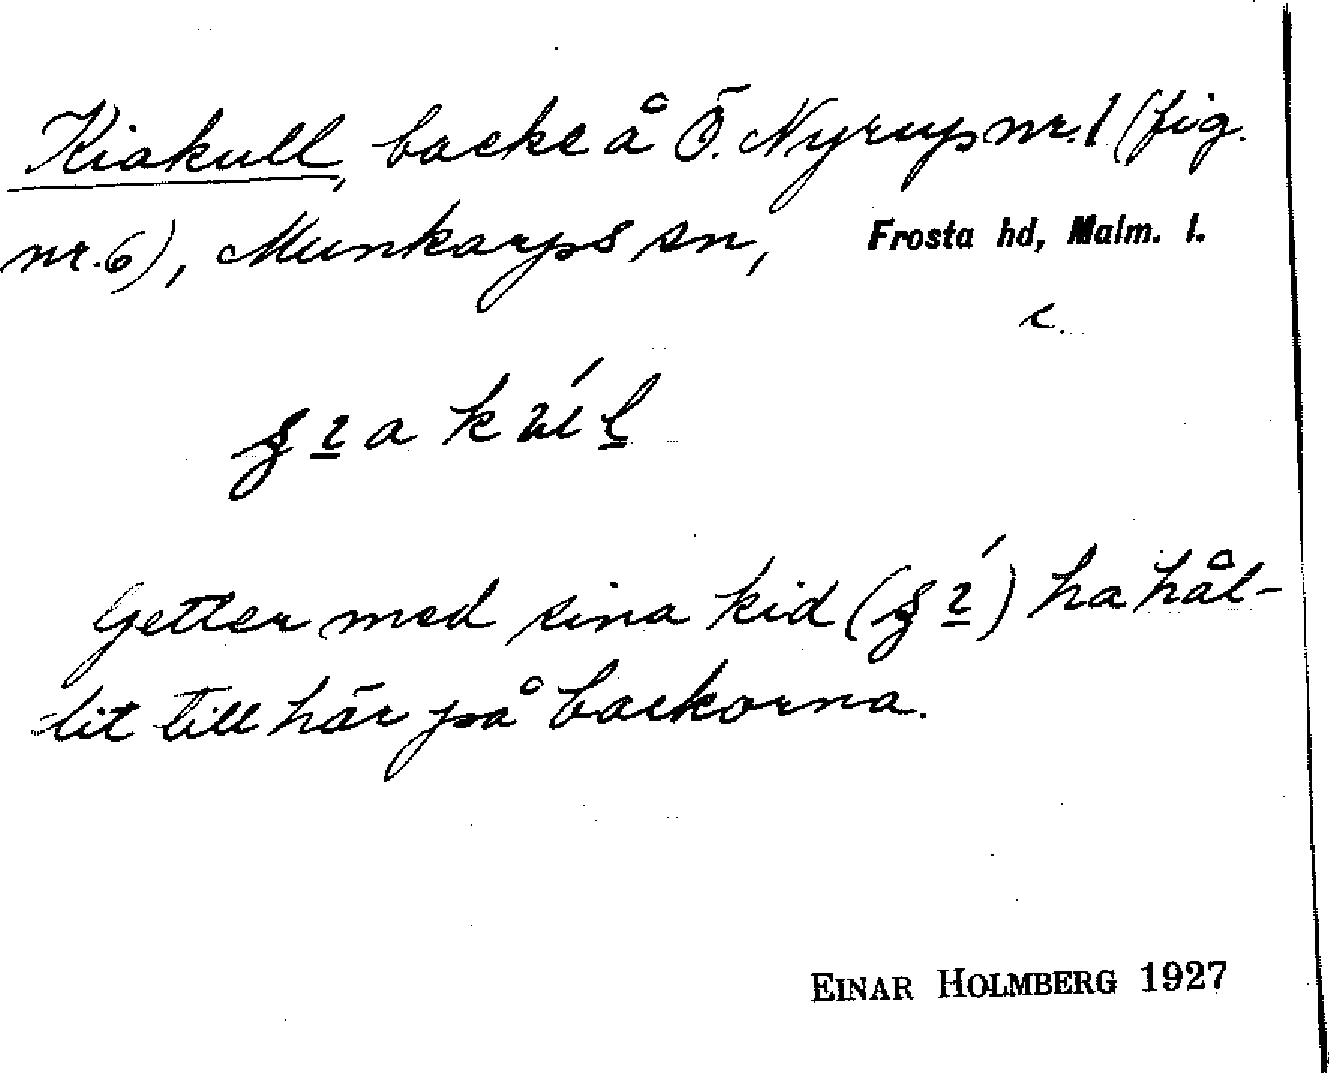 Kiakull, backe å Ö. Nyrup nr. 1 (fig.
nr. 6), Munkarps sn, Frosta hd, Malm. l.
Getter med sina kid ( ) ha hål-
lit till här på backorna.
EINAR HOLMBERG 1927